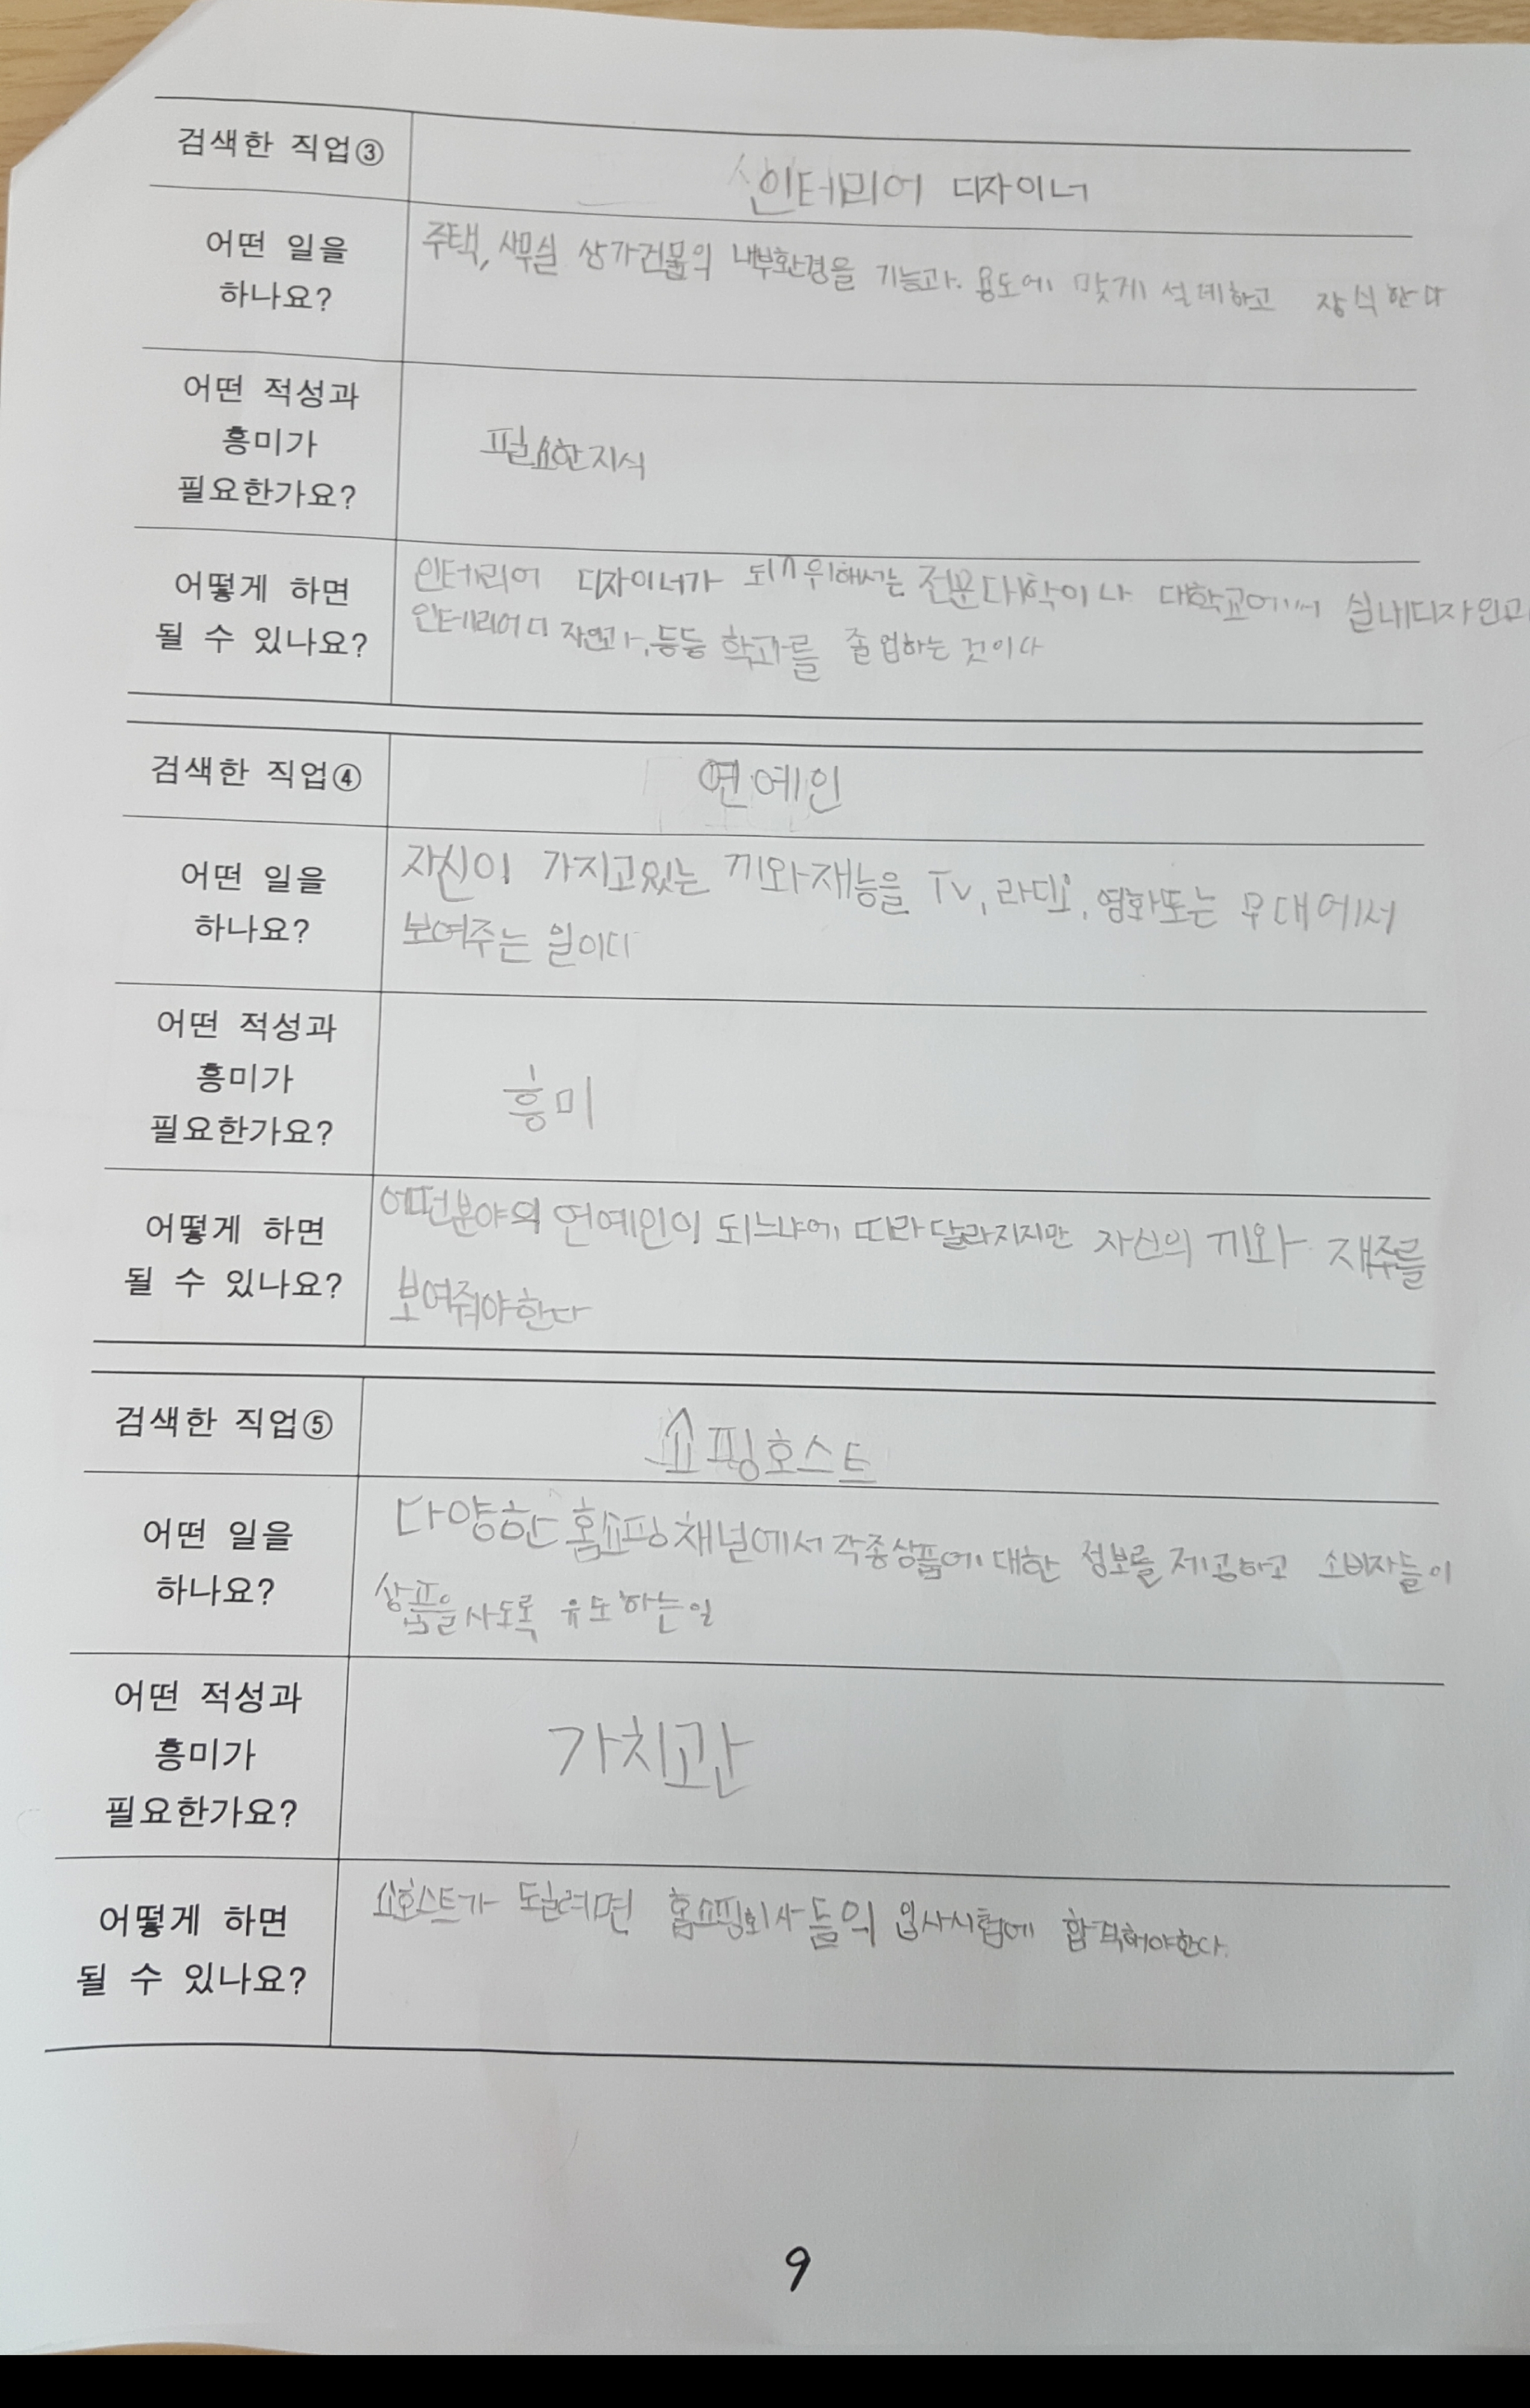 검색한 직업③
인테리어 디자이너
어떤 일을
하나요?
주택, 사무실 상가건물의 내부환경을 기능과 용도에 맞게 설계하고 장식한다
어떤 적성과
흥미가
필요한가요?
필요한지식
어떻게 하면
될 수 있나요?
인테리어 디자이너가 되기위해서는 전문대학이나 대학교에서 실내디자인과
인테리어디자인과,등등 학과를 졸업하는 것이다
검색한 직업④
연예인
어떤 일을
하나요?
자신이 가지고있는 끼와재능을 TV, 라디오, 영화또는 무대에서
보여주는 일이다
어떤 적성과
흥미가
필요한가요?
흥미
어떻게 하면
될 수 있나요?
어떤분야의 연예인이 되느냐에 따라달라지지만 자신의 끼와 재주를
보여줘야한다
검색한 직업⑤
쇼핑호스트
어떤 일을
하나요?
다양한 홈쇼핑채널에서 각종상품에 대한 정보를 제공하고 소비자들이
상품을사도록 유도하는일
어떤 적성과
흥미가
필요한가요?
가치관
어떻게 하면
될 수 있나요?
쇼호스트가 될려면 홈쇼핑회사들의 입사시험에 합격해야한다.
9